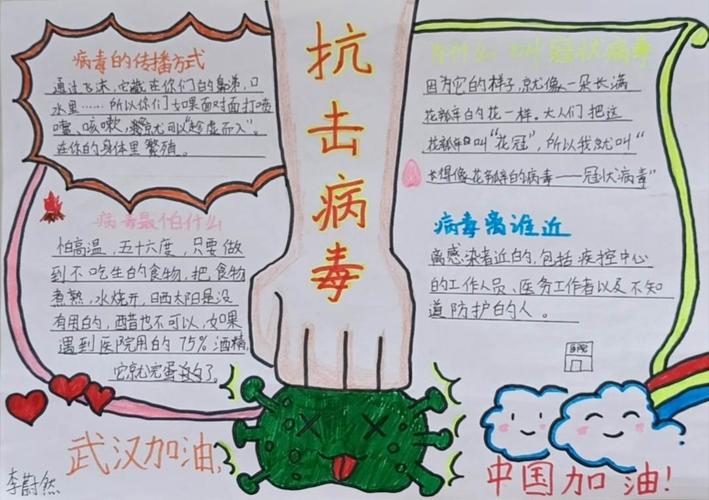 抗击病毒
病毒的传播方式
通过飞沫，它藏在你们的鼻涕，口
水里……所以你们如果面对面打喷
嚏、咳嗽，就可以“趁虚而入”。
在你的身体里繁殖。
病毒最怕什么
怕高温，五十六度，只要做
到不吃生的食物，把食物
煮熟，水烧开，日晒太阳是没
有用的，醋也不可以，如果
遇到医院用的75%酒精，
它就完蛋了。
武汉加油！
李蔚然
为什么叫冠状病毒
因为它的样子，就像一朵长满
花瓣的花一样。大人们把这
花瓣叫“花冠”，所以我就叫“
长得像花瓣的病毒——冠状病毒”
病毒离谁近
离感染者近的，包括疾控中心
的工作人员、医务工作者以及不知
道防护的人。
中国加油！